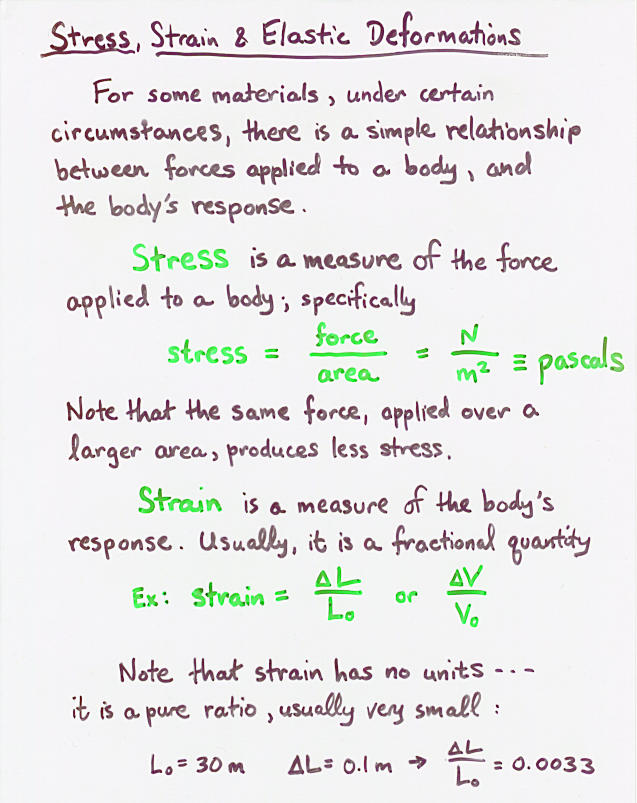 Stress, Strain & Elastic Deformations
For some materials, under certain
circumstances, there is a simple relationship
between forces applied to a body, and
the body's response.
Stress is a measure of the force
applied to a body; specifically
stress = force/area = N/m² ≡ pascals
Note that the same force, applied over a
larger area, produces less stress.
Strain is a measure of the body's
response. Usually, it is a fractional quantity
Ex: strain = ΔL/L₀ or ΔV/V₀
Note that strain has no units ---
it is a pure ratio, usually very small:
L₀ = 30 m ΔL = 0.1 m → ΔL/L₀ = 0.0033